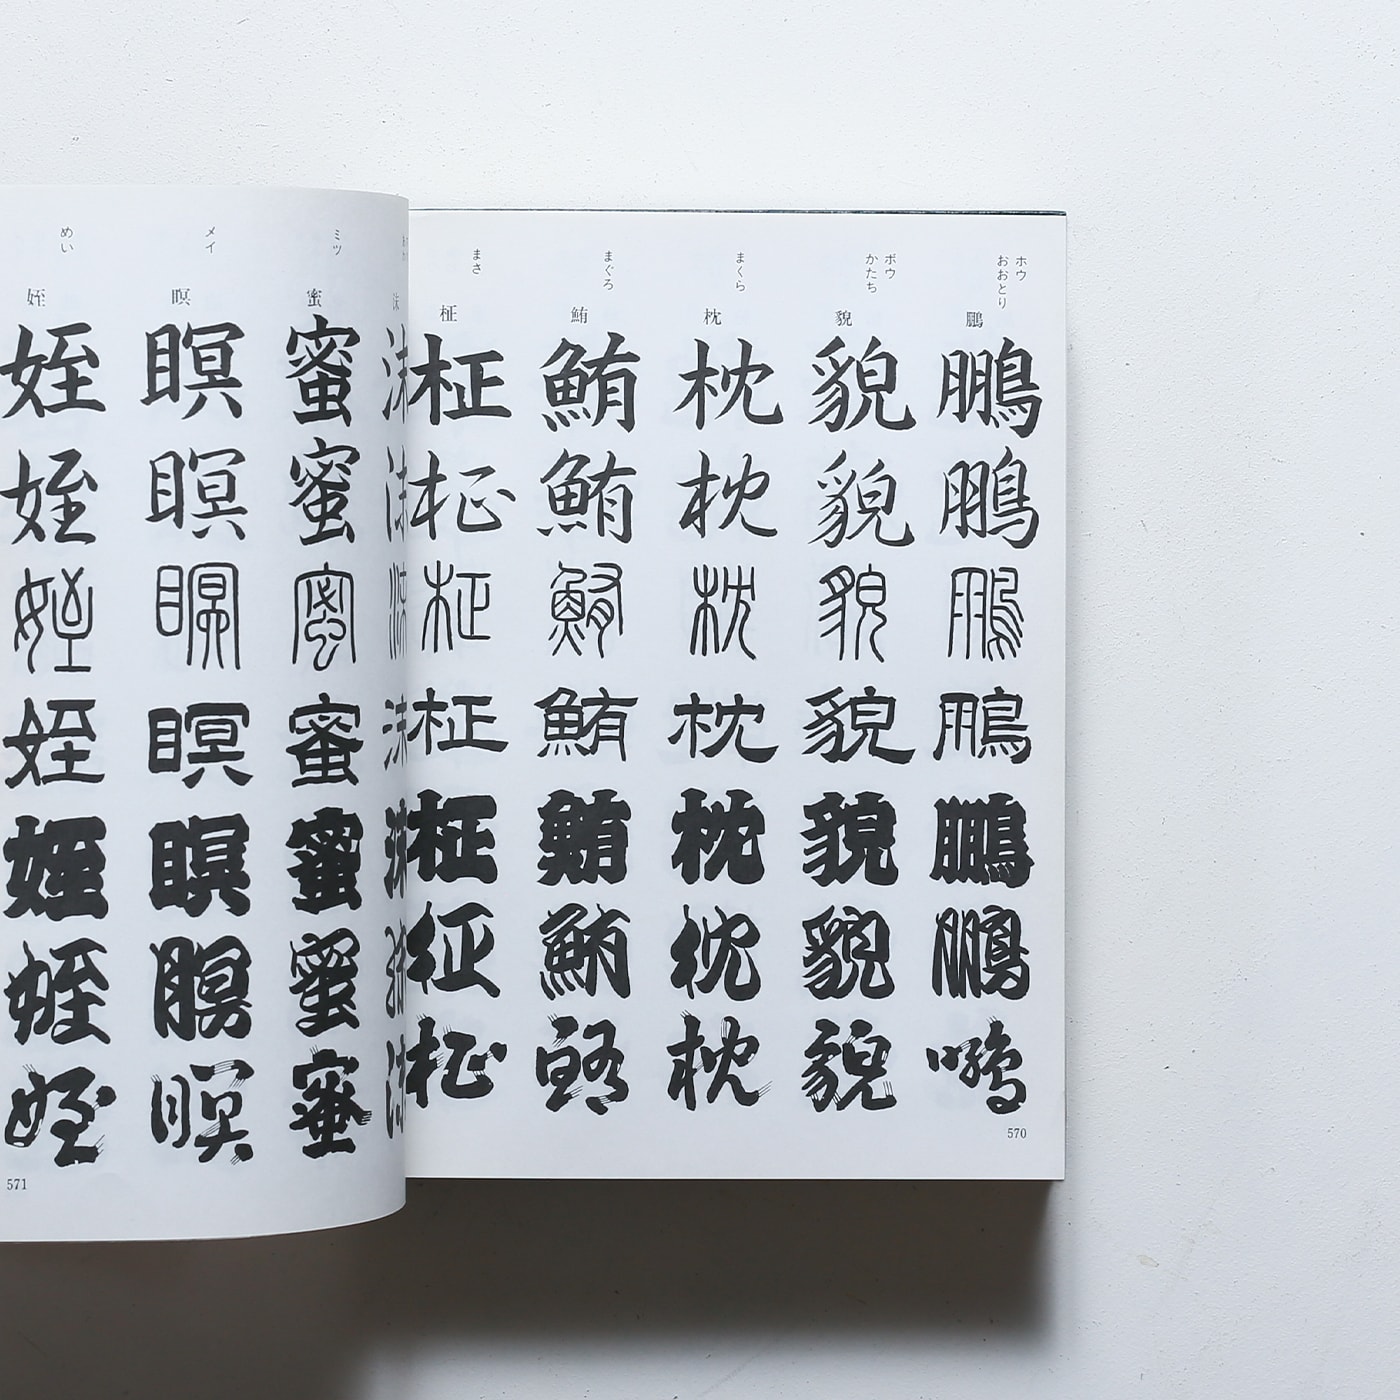 ホウ
おおとり
鵬
鵬
鵬
鵬
鵬
鵬
鵬
鵬
ボウ
かたち
貌
貌
貌
貌
貌
貌
貌
貌
まくら
枕
枕
枕
枕
枕
枕
枕
枕
まぐろ
鮪
鮪
鮪
鮪
鮪
鮪
鮪
鮪
まさ
柾
柾
柾
柾
柾
柾
柾
柾
570
沫
沫
沫
沫
沫
沫
沫
沫
ミツ
蜜
蜜
蜜
蜜
蜜
蜜
蜜
蜜
メイ
瞑
瞑
瞑
瞑
瞑
瞑
瞑
瞑
めい
姪
姪
姪
姪
姪
姪
姪
姪
571